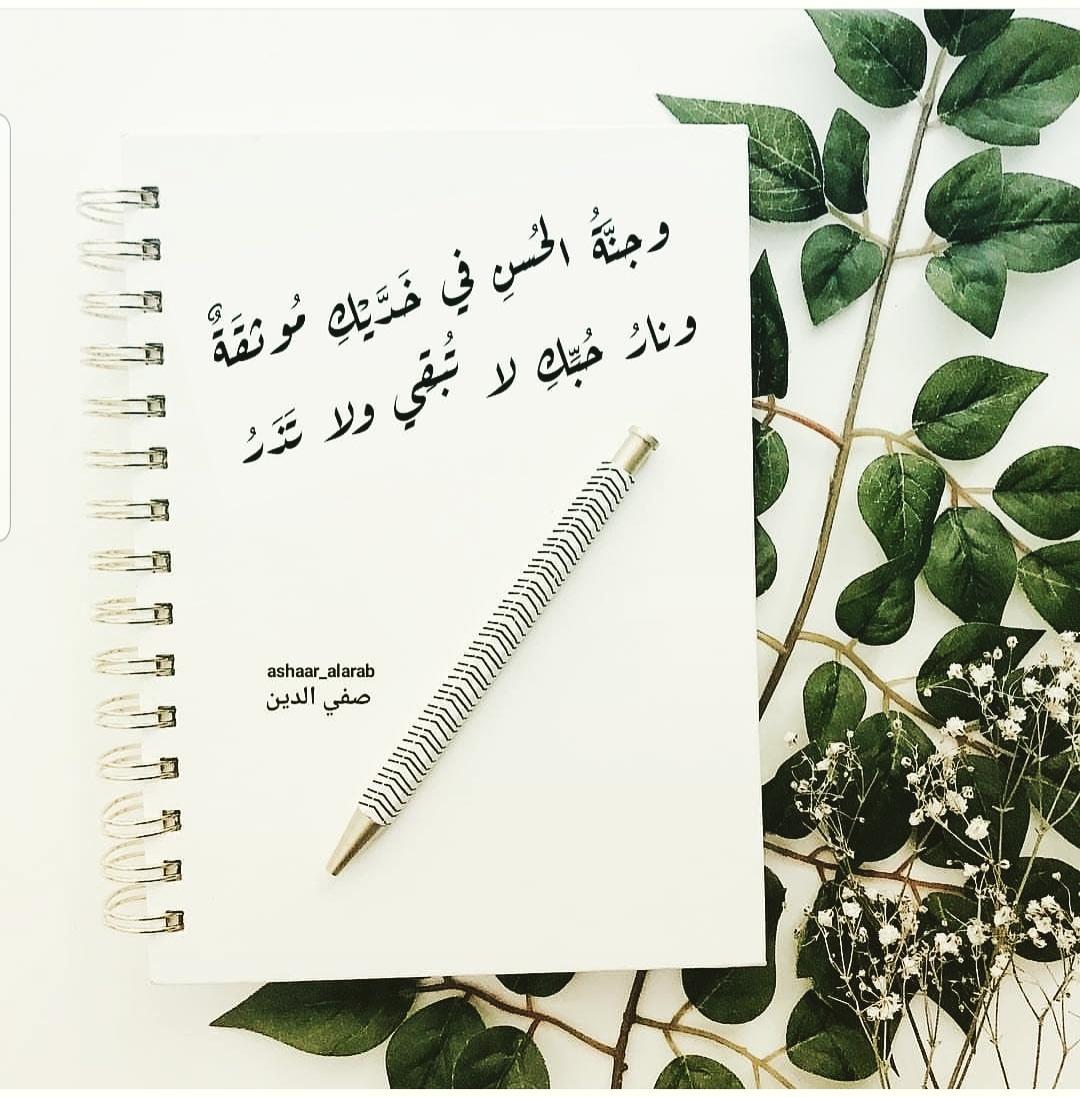 وجنَّةُ الحُسنِ في خَدَّيْكِ مُوثقَةٌ
ونارُ حُبّكِ لا تُبقي ولا تَذَرُ
ashaar_alarab
صفي الدين